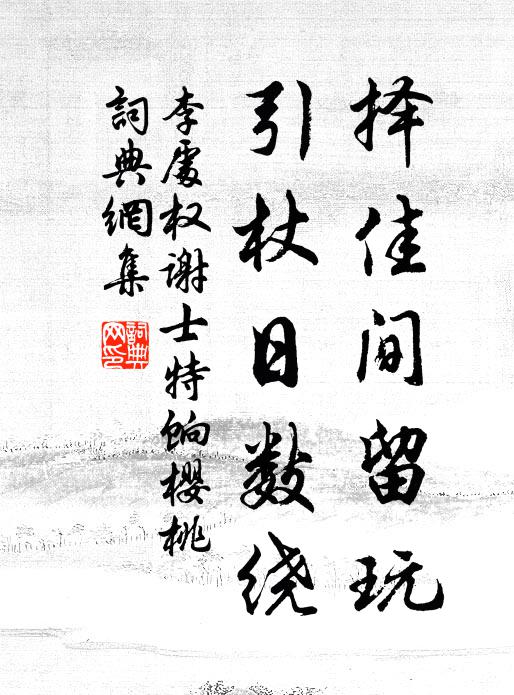 择佳间留玩
引杖日数绕
李處权谢士特饷樱桃
詞典網集
詞典網印